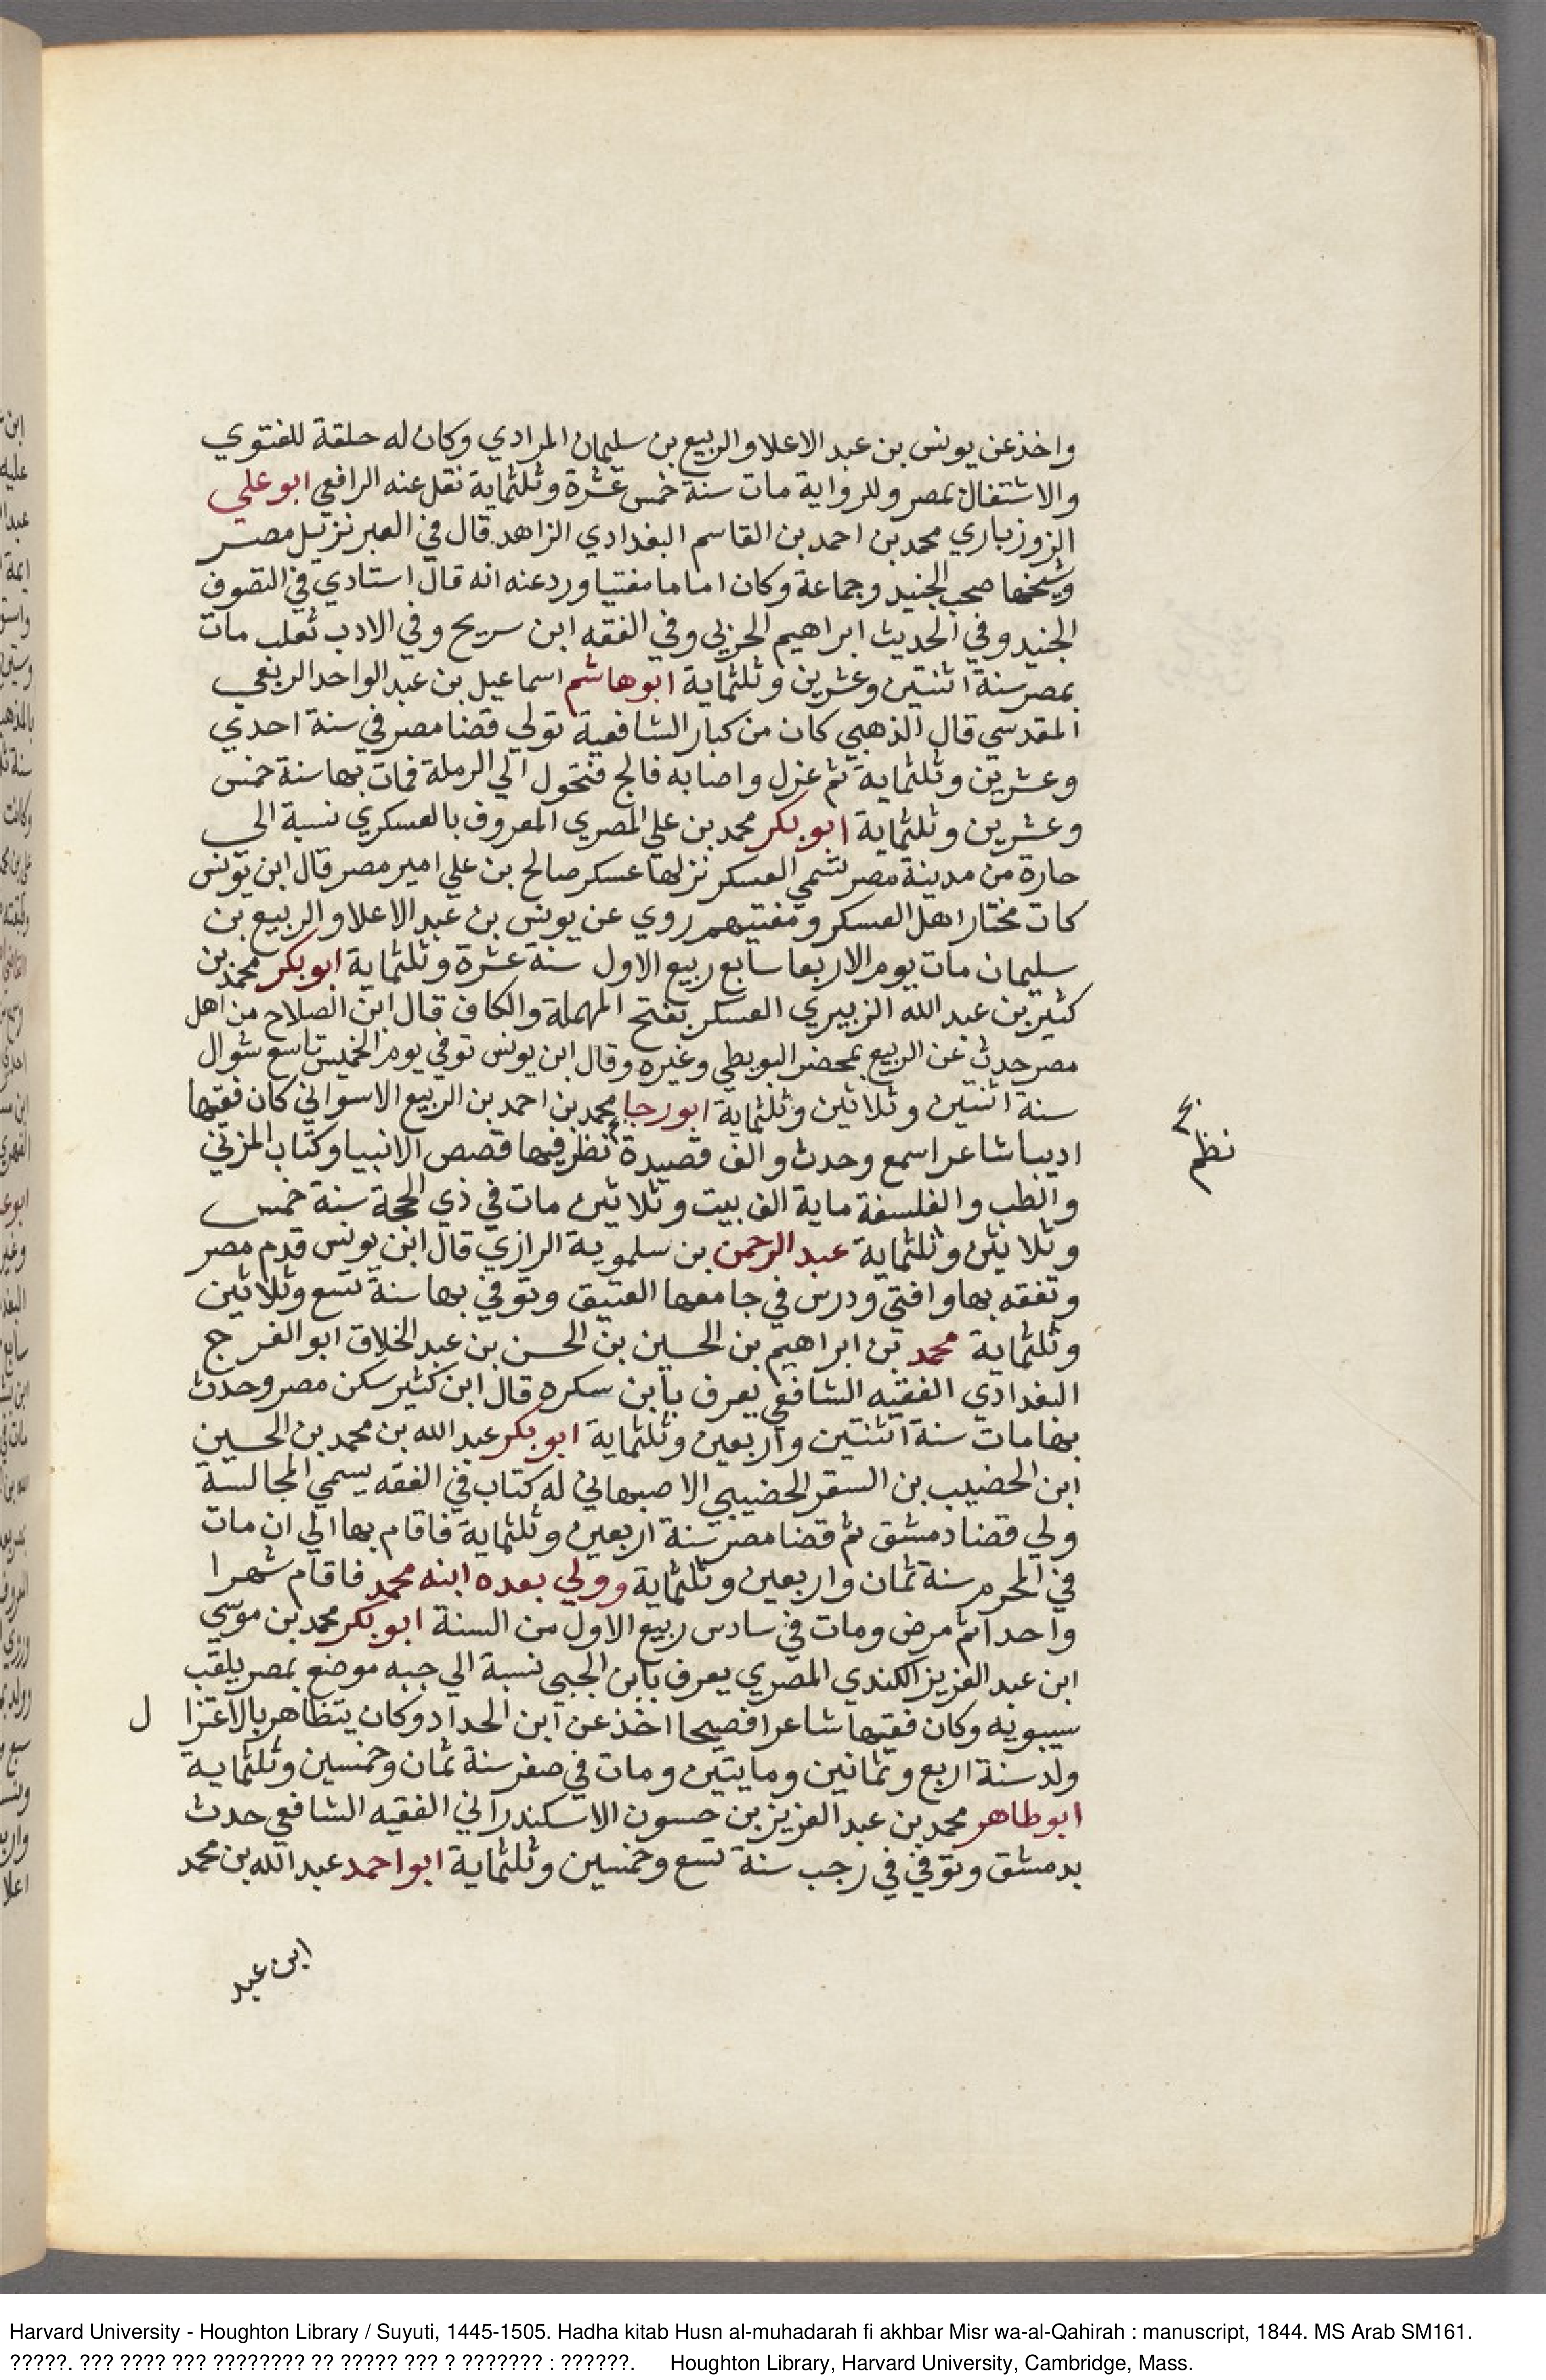 واخذ عن يونس بن عبد الاعلا والربيع بن سليمان المرادي وكان له حلقة للفتوي
والاشتغال بمصر وللرواية مات سنة خمس عشرة وثلثماية نقل عنه الرافعي ابو علي
الزوزباري محمد بن احمد بن القاسم البغدادي الزاهد قال في العبر نزيل مصر
وشيخها صحب الجنيد وجماعة وكان اماما مفتيا ورد عنه انه قال استادي في التصوف
الجنيد وفي الحديث ابراهيم الحربي وفي الفقه ابن سريح وفي الادب ثعلب مات
بمصر سنة اثنتين وعشرين وثلثماية ابو هاشم اسماعيل بن عبد الواحد الربعي
المقدسي قال الذهبي كان من كبار الشافعية تولي قضا مصر في سنة احدي
وعشرين وثلثماية ثم عزل واصابه فالج فتحول الي الرملة فمات بها سنة خمس
وعشرين وثلثماية ابو بكر محمد بن علي المصري المعروف بالعسكري نسبة الي
حارة من مدينة مصر تسمي العسكر نزلها عسكر صالح بن علي امير مصر قال ابن يونس
كان مختار اهل العسكر ومفتيهم روي عن يونس بن عبد الاعلا والربيع بن
سليمان مات يوم الاربعا سابع ربيع الاول سنة عشرة وثلثماية ابو بكر محمد بن
كثير بن عبد الله الزبيري العسكر بفتح المهملة والكاف قال ابن الصلاح من اهل
مصر حدث عن الربيع بمحضر البويطي وغيره وقال ابن يونس توفي يوم الخميس تاسع شوال
سنة اثنتين وثلاثين وثلثماية ابو رجا محمد بن احمد بن الربيع الاسواني كان فقيها
اديبا شاعرا سمع وحدث والف قصيدة نظر فيها قصص الانبيا وكتاب المزني
نظم
والطب والفلسفة ماية الف بيت وثلاثين مات في ذي الحجة سنة خمس
وثلاثين وثلثماية عبد الرحمن بن سلموية الرازي قال ابن يونس قدم مصر
وتفقه بها وافتي ودرس في جامعها العتيق وتوفي بها سنة تسع وثلاثين
وثلثماية محمد بن ابراهيم بن الحسين بن الحسن بن عبد الخلاق ابو الفرج
البغدادي الفقيه الشافعي يعرف بابن سكره قال ابن كثير سكن مصر وحدث
بها مات سنة اثنتين واربعين وثلثماية ابو بكر عبد الله بن محمد بن الحسين
ابن الخصيب بن السقر الخصيبي الاصبهاني له كتاب في الفقه يسمي المجالسة
ولي قضا دمشق ثم قضا مصر سنة اربعين وثلثماية فاقام بها الي ان مات
في المحرم سنة ثمان واربعين وثلثماية وولي بعده ابنه محمد فاقام شهرا
واحدا ثم مرض ومات في سادس ربيع الاول من السنة ابو بكر محمد بن موسي
ابن عبد العزيز الكندي المصري يعرف بابن الجبي نسبة الي جبه موضع بمصر يلقب
سيبويه وكان فقيها شاعرا فصيحا اخذ عن ابن الحداد وكان يتظاهر بالاعتزا ل
ولد سنة اربع وثمانين ومايتين ومات في صفر سنة ثمان وخمسين وثلثماية
ابو طاهر محمد بن عبد العزيز بن حسون الاسكندراني الفقيه الشافعي حدث
بدمشق وتوفي في رجب سنة تسع وخمسين وثلثماية ابو احمد عبد الله بن محمد
ابن عبد
Harvard University - Houghton Library / Suyuti, 1445-1505. Hadha kitab Husn al-muhadarah fi akhbar Misr wa-al-Qahirah : manuscript, 1844. MS Arab SM161.
?????. ??? ???? ??? ???????? ?? ????? ??? ? ??????? : ??????. Houghton Library, Harvard University, Cambridge, Mass.